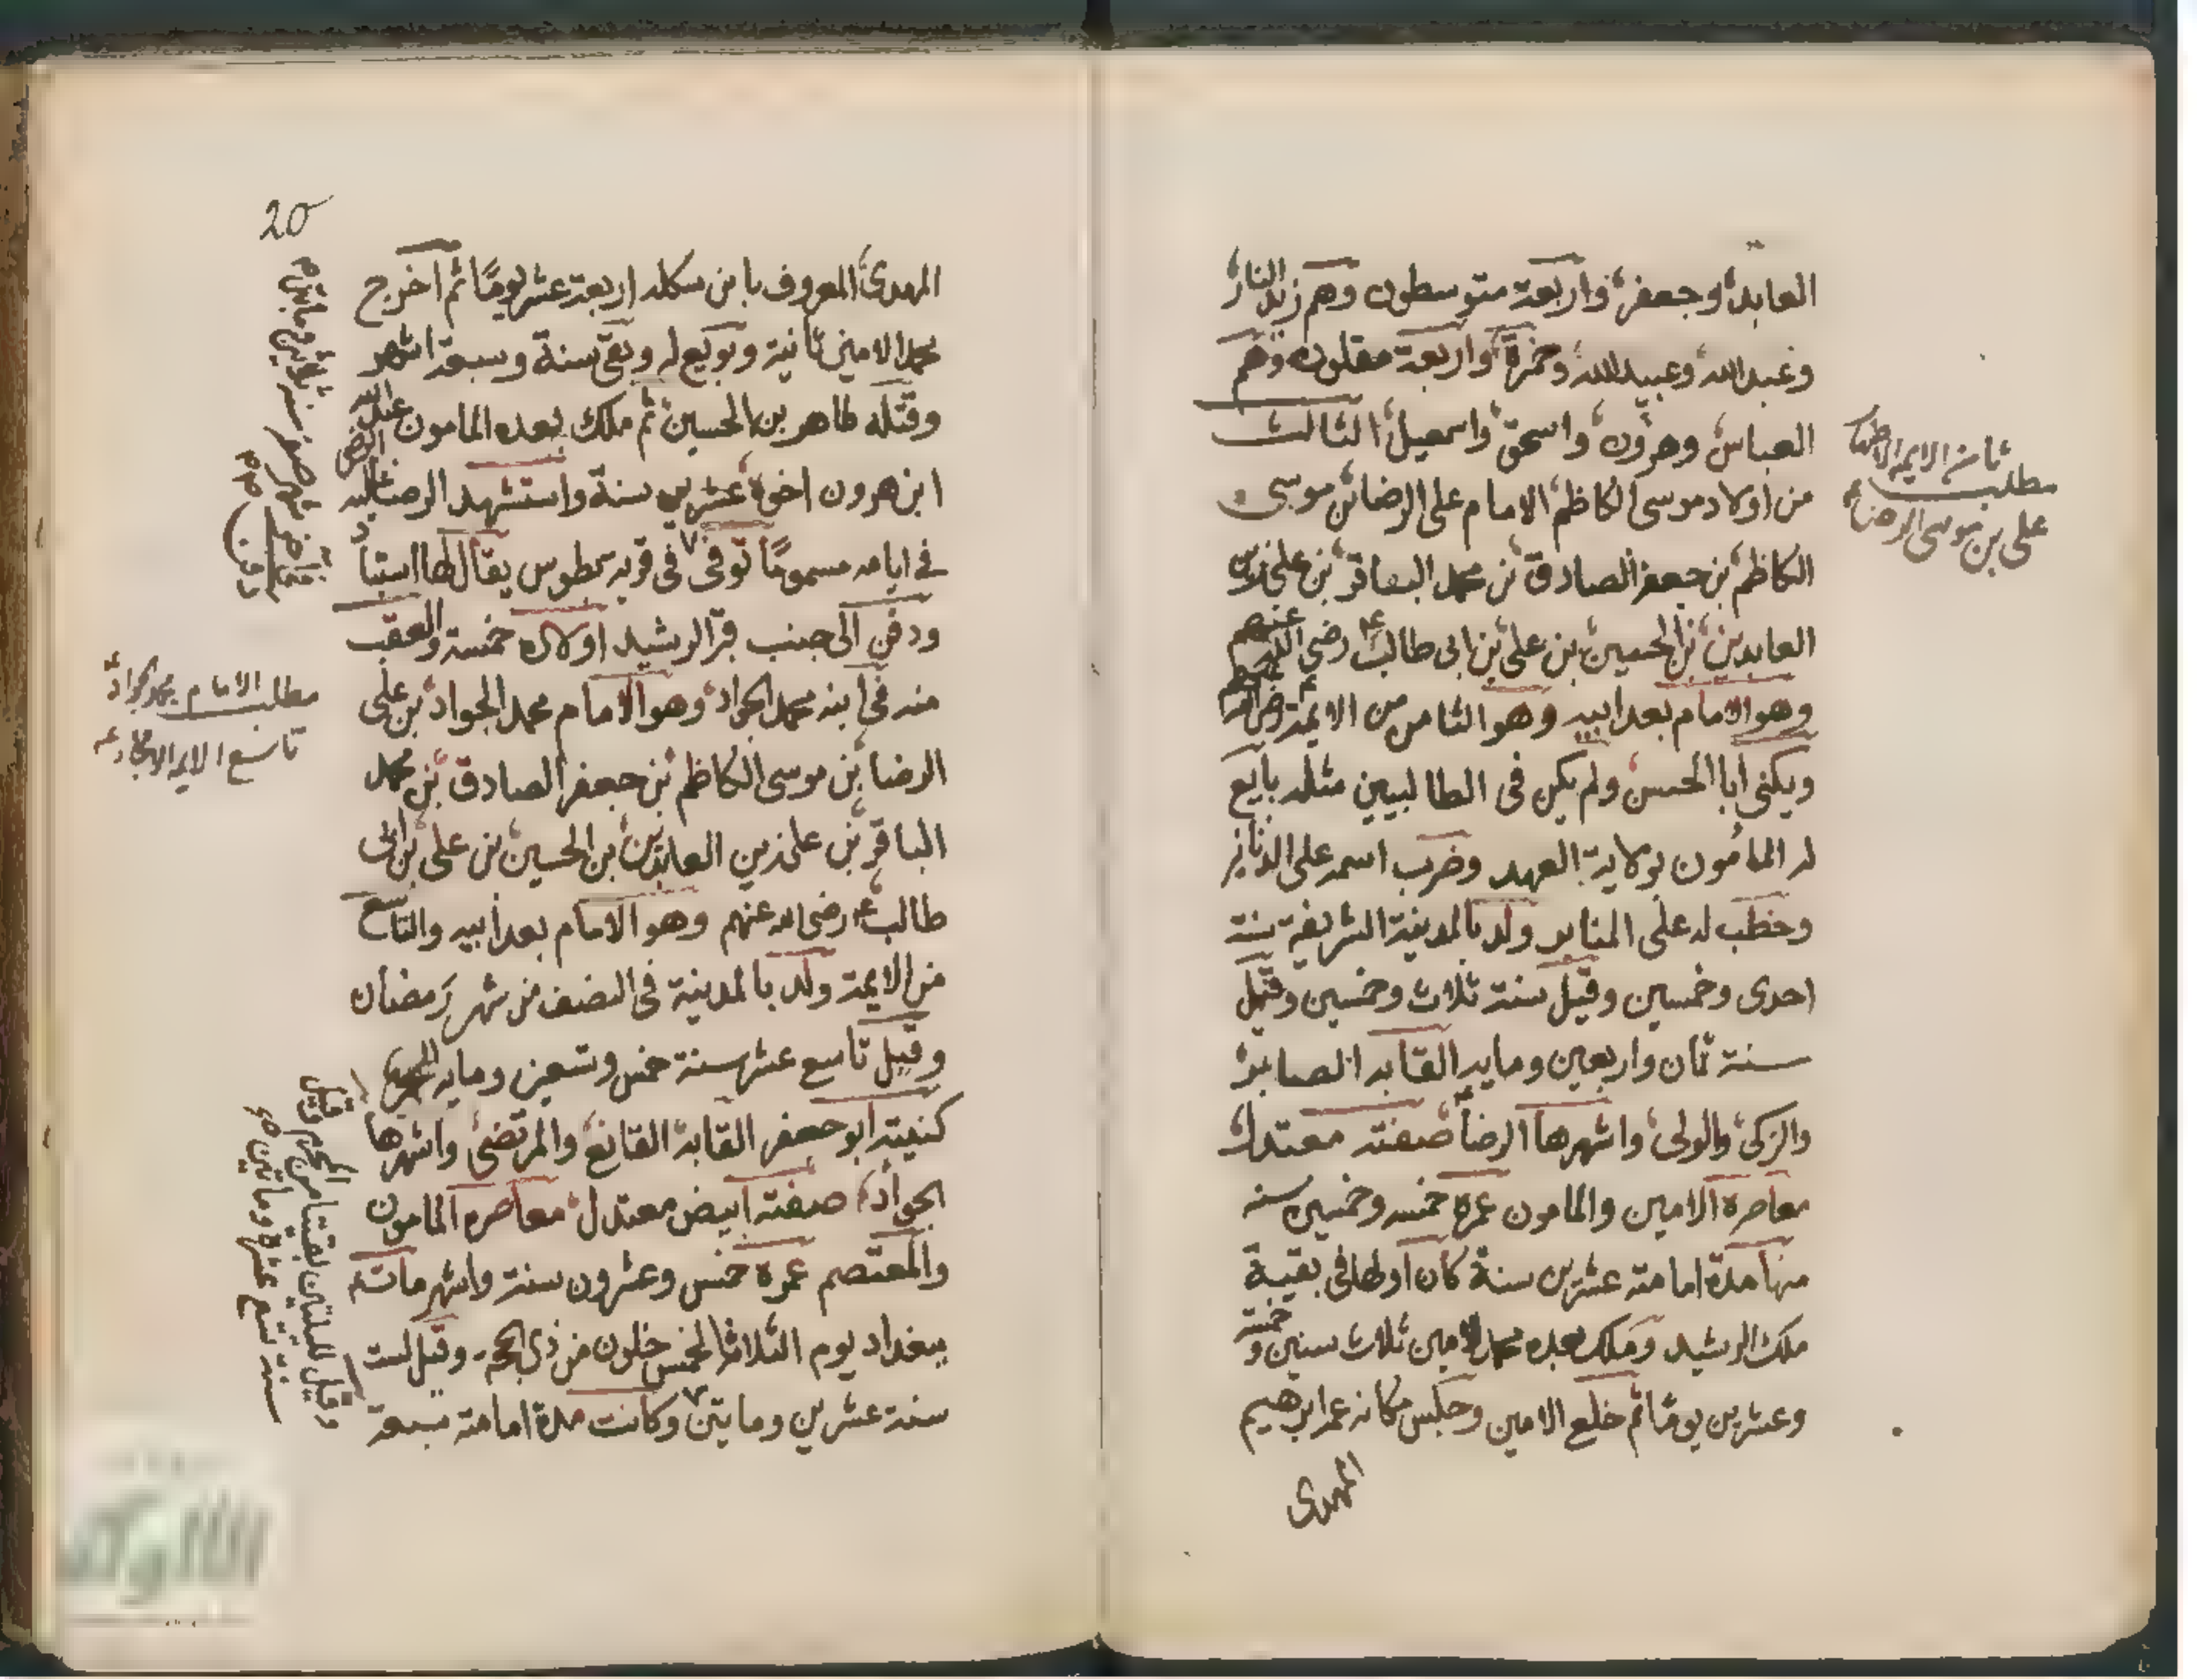 العابد وجعفر واربعة متوسطون وهم زيد النار
وعبد الله وعبيد الله وحمزة واربعة مقلون وهم
العباس وهرون واسحق واسمعيل الثالث
من اولاد موسى الكاظم الامام على الرضا بن موسى
الكاظم بن جعفر الصادق بن محمد الباقر بن على زين
العابدين بن الحسين بن على بن ابى طالب رضى الله عنهم
وهو الامام بعد ابيه وهو الثامن من الايمة
ويكنى ابا الحسن ولم يكن فى الطالبيين مثله بايع
له المامون بولاية العهد وضرب اسمه على الدنانير
وخطب له على المنابر ولد بالمدينة الشريفة سنة
احدى وخمسين وقيل سنة ثلاث وخمسين وقيل
سنة ثمان واربعين ومايه القابه الصابر
والزكى والولى واشهرها الرضا صفته معتدل
معاصره الامين والمامون عمره خمسه وخمسين سنه
منها مدة امامته عشرين سنة كان اولها فى بقية
ملك الرشيد وملك بعده محمد الامين ثلاث سنين و خمسة
وعشرين يوما ثم خلع الامين وجلس مكانه عمه ابرهيم
المهدى
ثامن الايمه الاطهار
مطلب
على بن موسى الرضا
20
المهدى المعروف بابن شكله اربعة عشر يوما ثم اخرج
محمد الامين ثانية وبويع له وبقى سنة وسبعة اشهر
وقتله طاهر بن الحسين ثم ملك بعده المامون عبد الله
ابن هرون اخوه عشرين سنة واستشهد الرضا
فى ايامه مسموما توفى فى قرية بطوس يقال لها استباد
ودفن الى جنب قبر الرشيد اولاده خمسة والعقب
منه فى ابنه محمد الجواد وهو الامام محمد الجواد بن على
الرضا بن موسى الكاظم بن جعفر الصادق بن محمد
الباقر بن على زين العابدين بن الحسين بن على بن ابى
طالب رضى الله عنهم وهو الامام بعد ابيه والتاسع
من الايمة ولد بالمدينة فى النصف من شهر رمضان
وقيل تاسع عشر سنة خمس وتسعين ومايه
كنيته ابو جعفر القابه القانع والمرتضى واشهرها
الجواد صفته ابيض معتدل معاصره المامون
والمعتصم عمره خمس وعشرون سنة واشهر مات
ببغداد يوم الثلاثا لخمس خلون من ذى الحجه وقيل لست
سنة عشرين ومايتين وكانت مدة امامته سبعة
مطلب الامام محمد الجواد
تاسع الايمه الامجاد
وقيل لليلتين بقيتا من المحرم وقيل
سنة تسع عشرة ومايتين